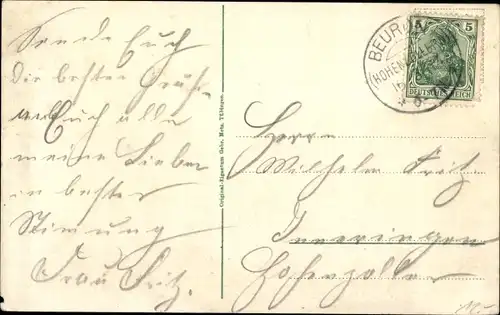 Sende Euch
die besten Grüße
an Euch alle
meine Lieben
in bester
Stimung
Frau Fritz.
Original-Eigentum Gebr. Metz, Tübingen
BEURON
(HOHENZOLLERN)
5 5
DEUTSCHES REICH
Herrn
Wilhelm Fritz
Inneringen
Hohenzoller